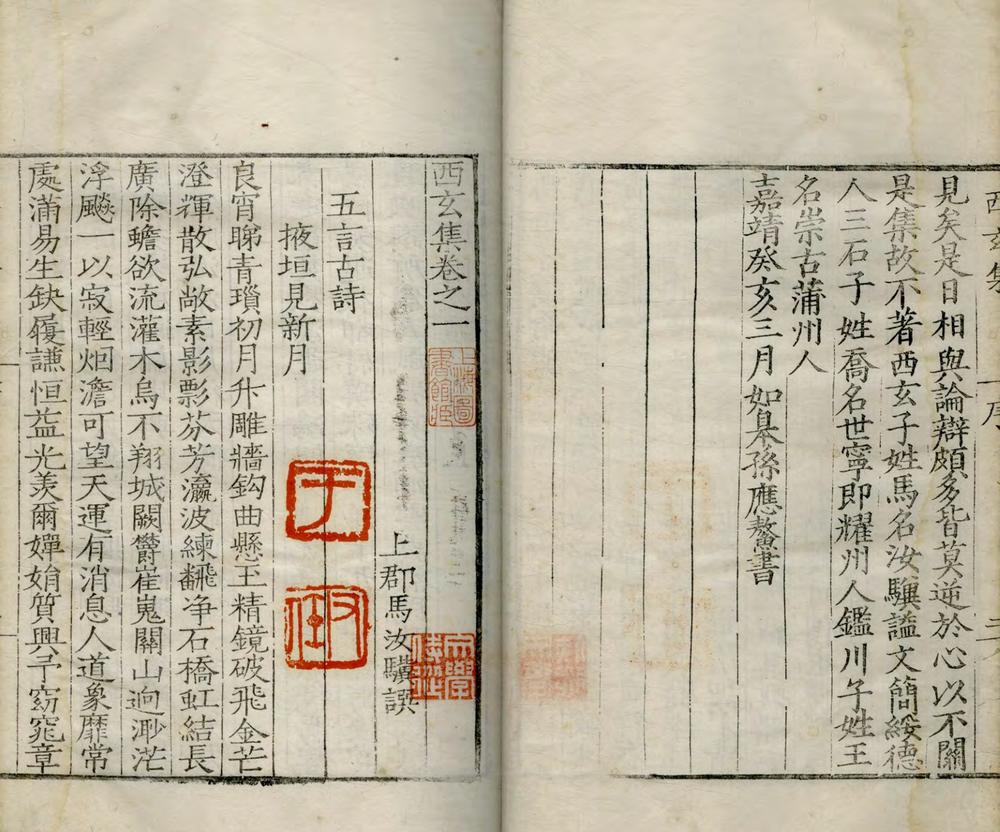 見矣是日相與論辯頗多皆莫逆於心以不關
是集故不著西玄子姓馬名汝驥謚文簡綏德
人三石子姓喬名世寧即耀州人鑑川子姓王
名崇古蒲州人
嘉靖癸亥三月如皋孫應鰲書
西玄集卷之一
上郡馬汝驥譔
五言古詩
掖垣見新月
良宵睇青瑣初月升雕牆鈎曲懸玉精鏡破飛金芒
澄輝散弘敞素影彯芬芳瀛波練飜净石橋虹結長
廣除蟾欲流灌木烏不翔城闕欝崔嵬關山逈渺茫
浮飈一以寂輕烟澹可望天運有消息人道象靡常
處滿易生缺履謙恒益光羨爾嬋娟質興予窈窕章
上海圖書館藏